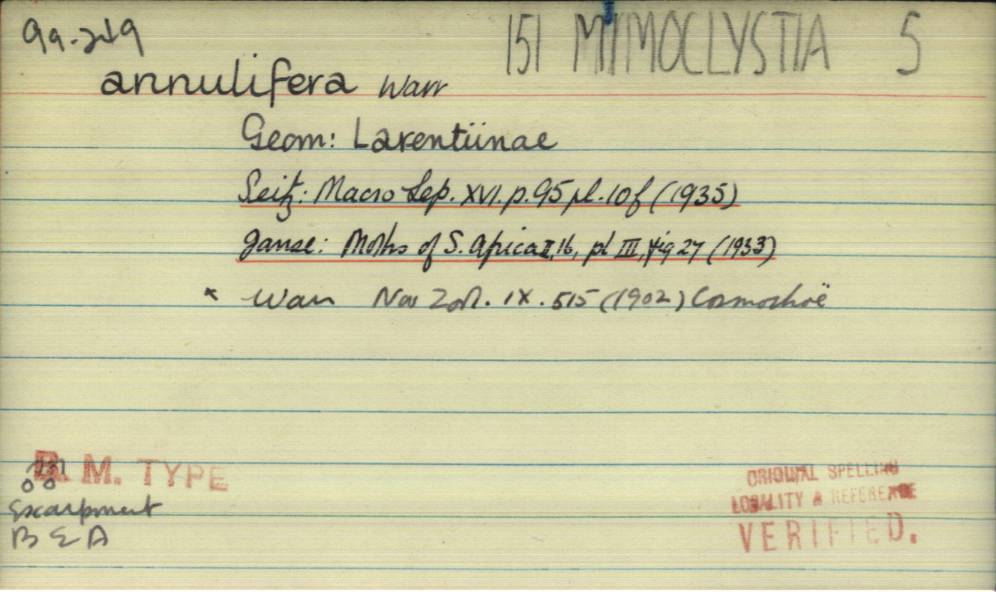 99-249
151 MIMOCLYSTIA 5
annulifera Warr
Geom: Larentiinae
Seitz: Macro Lep. XVI. p. 95 pl. 10f (1935)
Janse: Moths of S. Africa II, 16, pl III, fig 27 (1933)
* Warr Nov Zool. IX. 515 (1902) Cosmorhoë
B. M. TYPE
Escarpment
B E A
ORIGINAL SPELLING
LOCALITY & REFERENCE
VERIFIED.